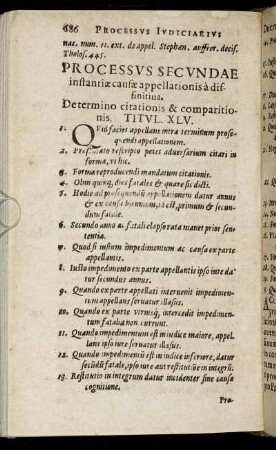 686 PROCESSVS IVDICIARIVS
nas. num. 11. ext. do appel. Stephan. auffrer. decis.
Tholos. 445.
PROCESSVS SECVNDAE
instantiæ causæ appellationis à dif-
finitiua.
Determino citationis & comparitio-
nis. TITVL. XLV.
1. QVid faciet appellans intra terminum prose-
quendi appellationem.
2. rescripto petet aduersarium citari in
forma, vt hic.
3. Forma reproducendi mandatum citationis.
4. Olim quinq; dies fatales & quare sic dicti.
5. Hodie ad prosequendũ appellationem datur annus
& ex causa biennium, scilt. primum & secun-
dum fatale.
6. Secundo anno ac fatali elapso rata manet prior sen-
tentia.
7. Quod si iustum impedimentum ac causa ex parte
appellantis.
8. Iusto impedimento ex parte appellantis ipso iure da-
tur secundus annus.
9. Quando ex parte appellati interuenit impedimen-
tum appellans seruatur illæsus.
10. Quando ex parte virmsq; intercedit impedimen-
tum fatalia non currunt.
11. Quando impedimentum est in iudice maiore, appel-
lans ipso iure seruatur illæsus.
12. Quando impedimentũ est in iudice inferiore, datur
secũdũ fatale, ipso iure aut restitutiõe in integrũ.
13. Restitutio in integrum datur incidenter sine causa
cognitione.
Pra-